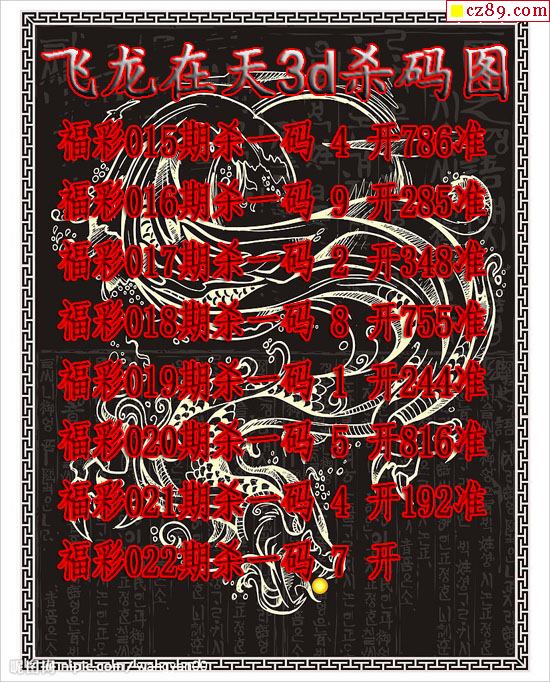 cz89.com
飞龙在天3d杀码图
福彩015期杀一码 4 开786准
福彩016期杀一码 9 开285准
福彩017期杀一码 2 开348准
福彩018期杀一码 8 开755准
福彩019期杀一码 1 开244准
福彩020期杀一码 5 开816准
福彩021期杀一码 4 开192准
福彩022期杀一码 7 开